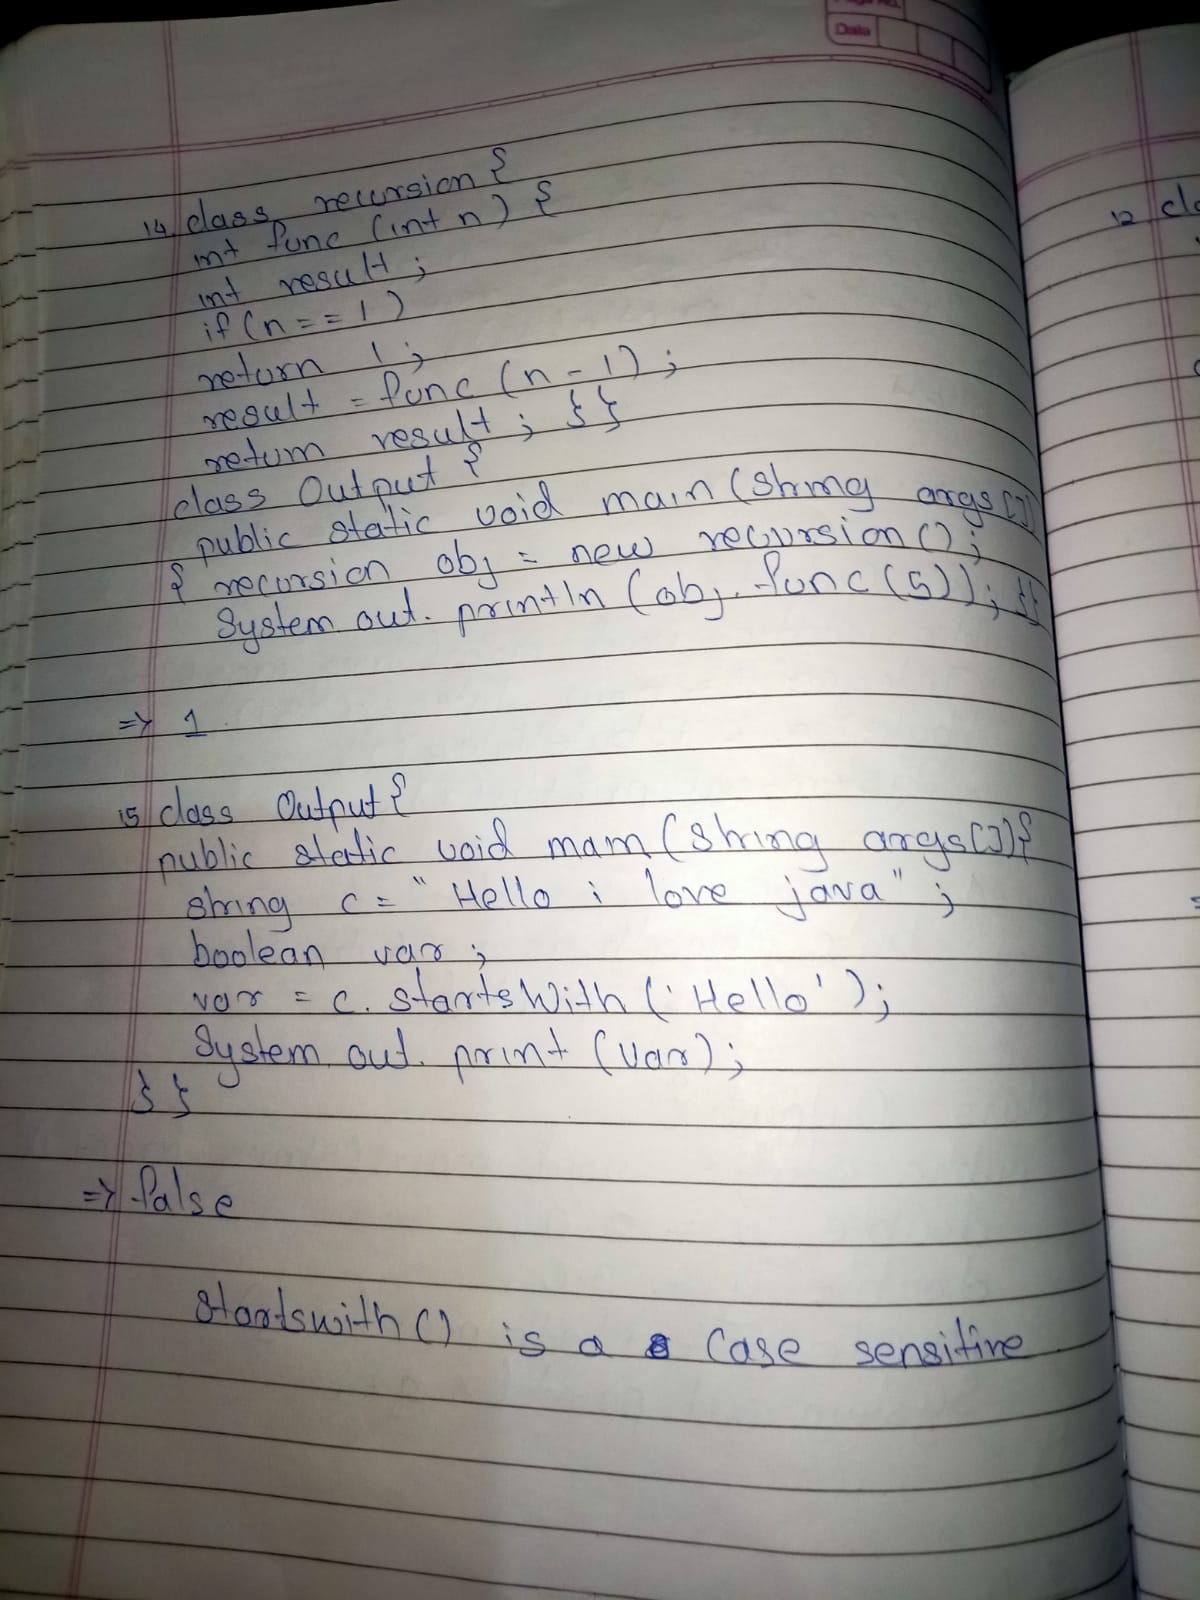 Page No.
Date
14 class recursion {
int func (int n) {
int result ;
if (n = = 1)
return 1 ;
result = func (n - 1) ;
return result ; } }
class Output {
public static void main (String args []
{ recursion obj = new recursion () ;
System out. println (obj. func (5)) ; } }
=> 1
15 class Output {
public static void main (String args []) {
string c = " Hello i love java " ;
boolean var ;
var = c. starts With (' Hello ' ) ;
System out. print (var) ;
} }
=> false
Startswith () is a Case sensitive
12 cla